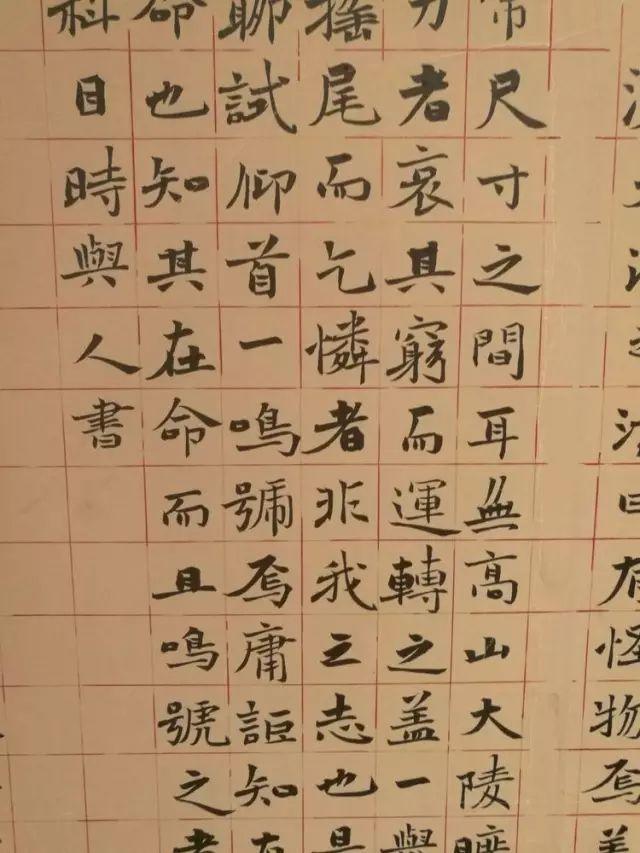 曰有怪物焉
常尺寸之間耳無高山大陵曠
力者哀其窮而運轉之盖一
搖尾而乞憐者非我之志也是
聊試仰首一鳴號焉庸詎知有
命也知其在命而且鳴號之者
科目時與人書